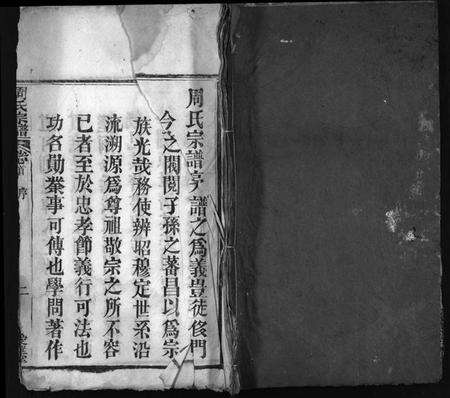 周氏宗譜序
譜之為義豈徒侈門
今之閥閱子孫之蕃昌以為宗
族光哉務使辨昭穆定世系沿
流溯源為尊祖敬宗之所不容
已者至於忠孝節義行可法也
功名勛業事可傳也學問著作
周氏宗譜
卷首 序
二